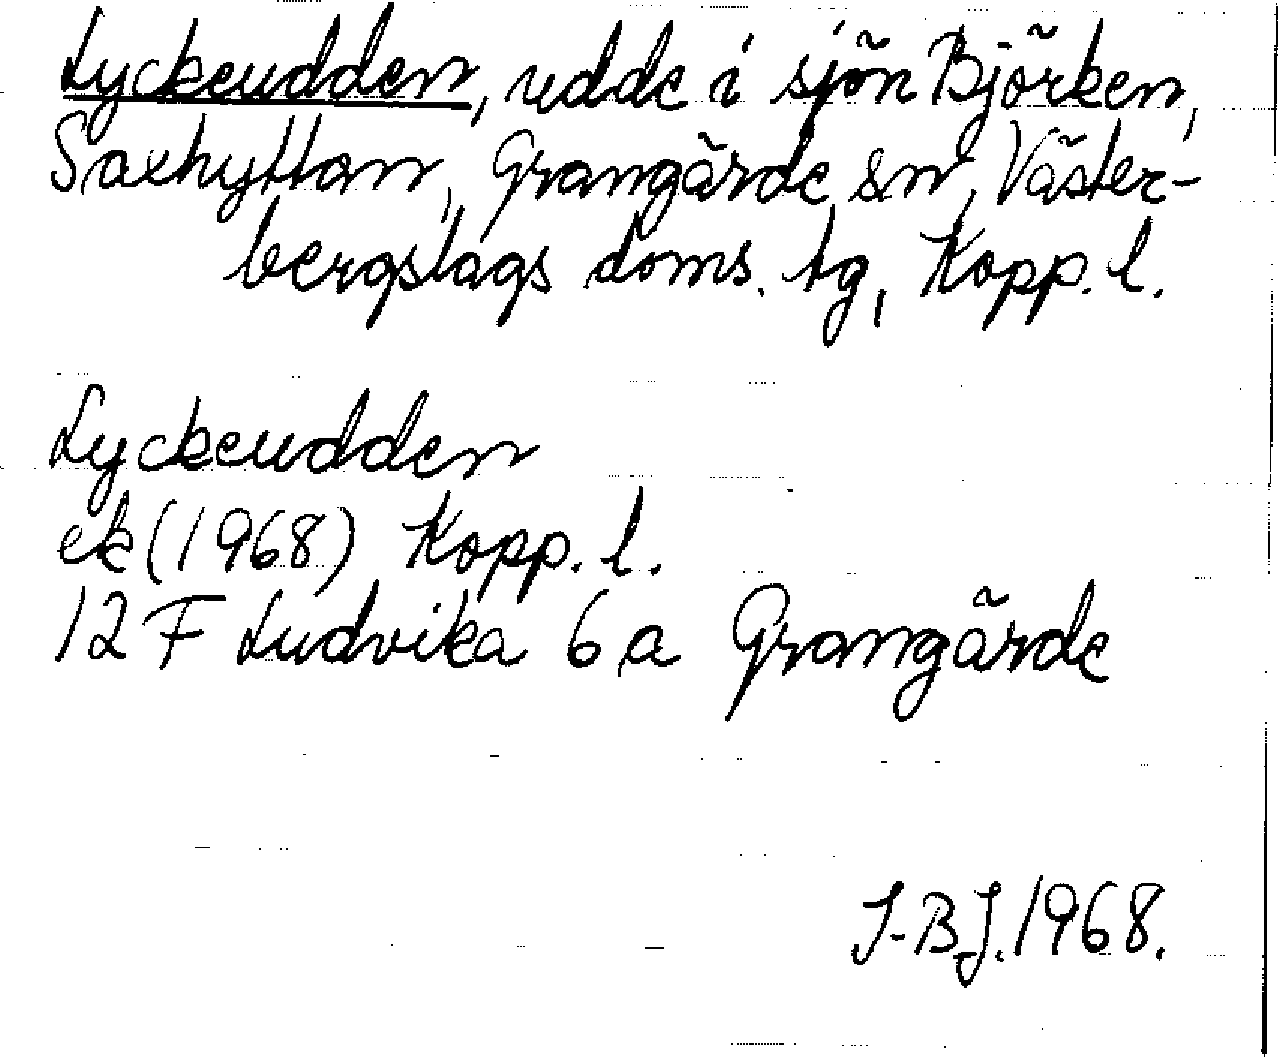 Lyckeudden, udde i sjön Björken,
Saxhyttan, Grangärde sn, Väster-
bergslags doms. tg, Kopp. l.
Lyckeudden
ek (1968) Kopp. l.
12 F Ludvika 6 a Grangärde
I-BJ. 1968.